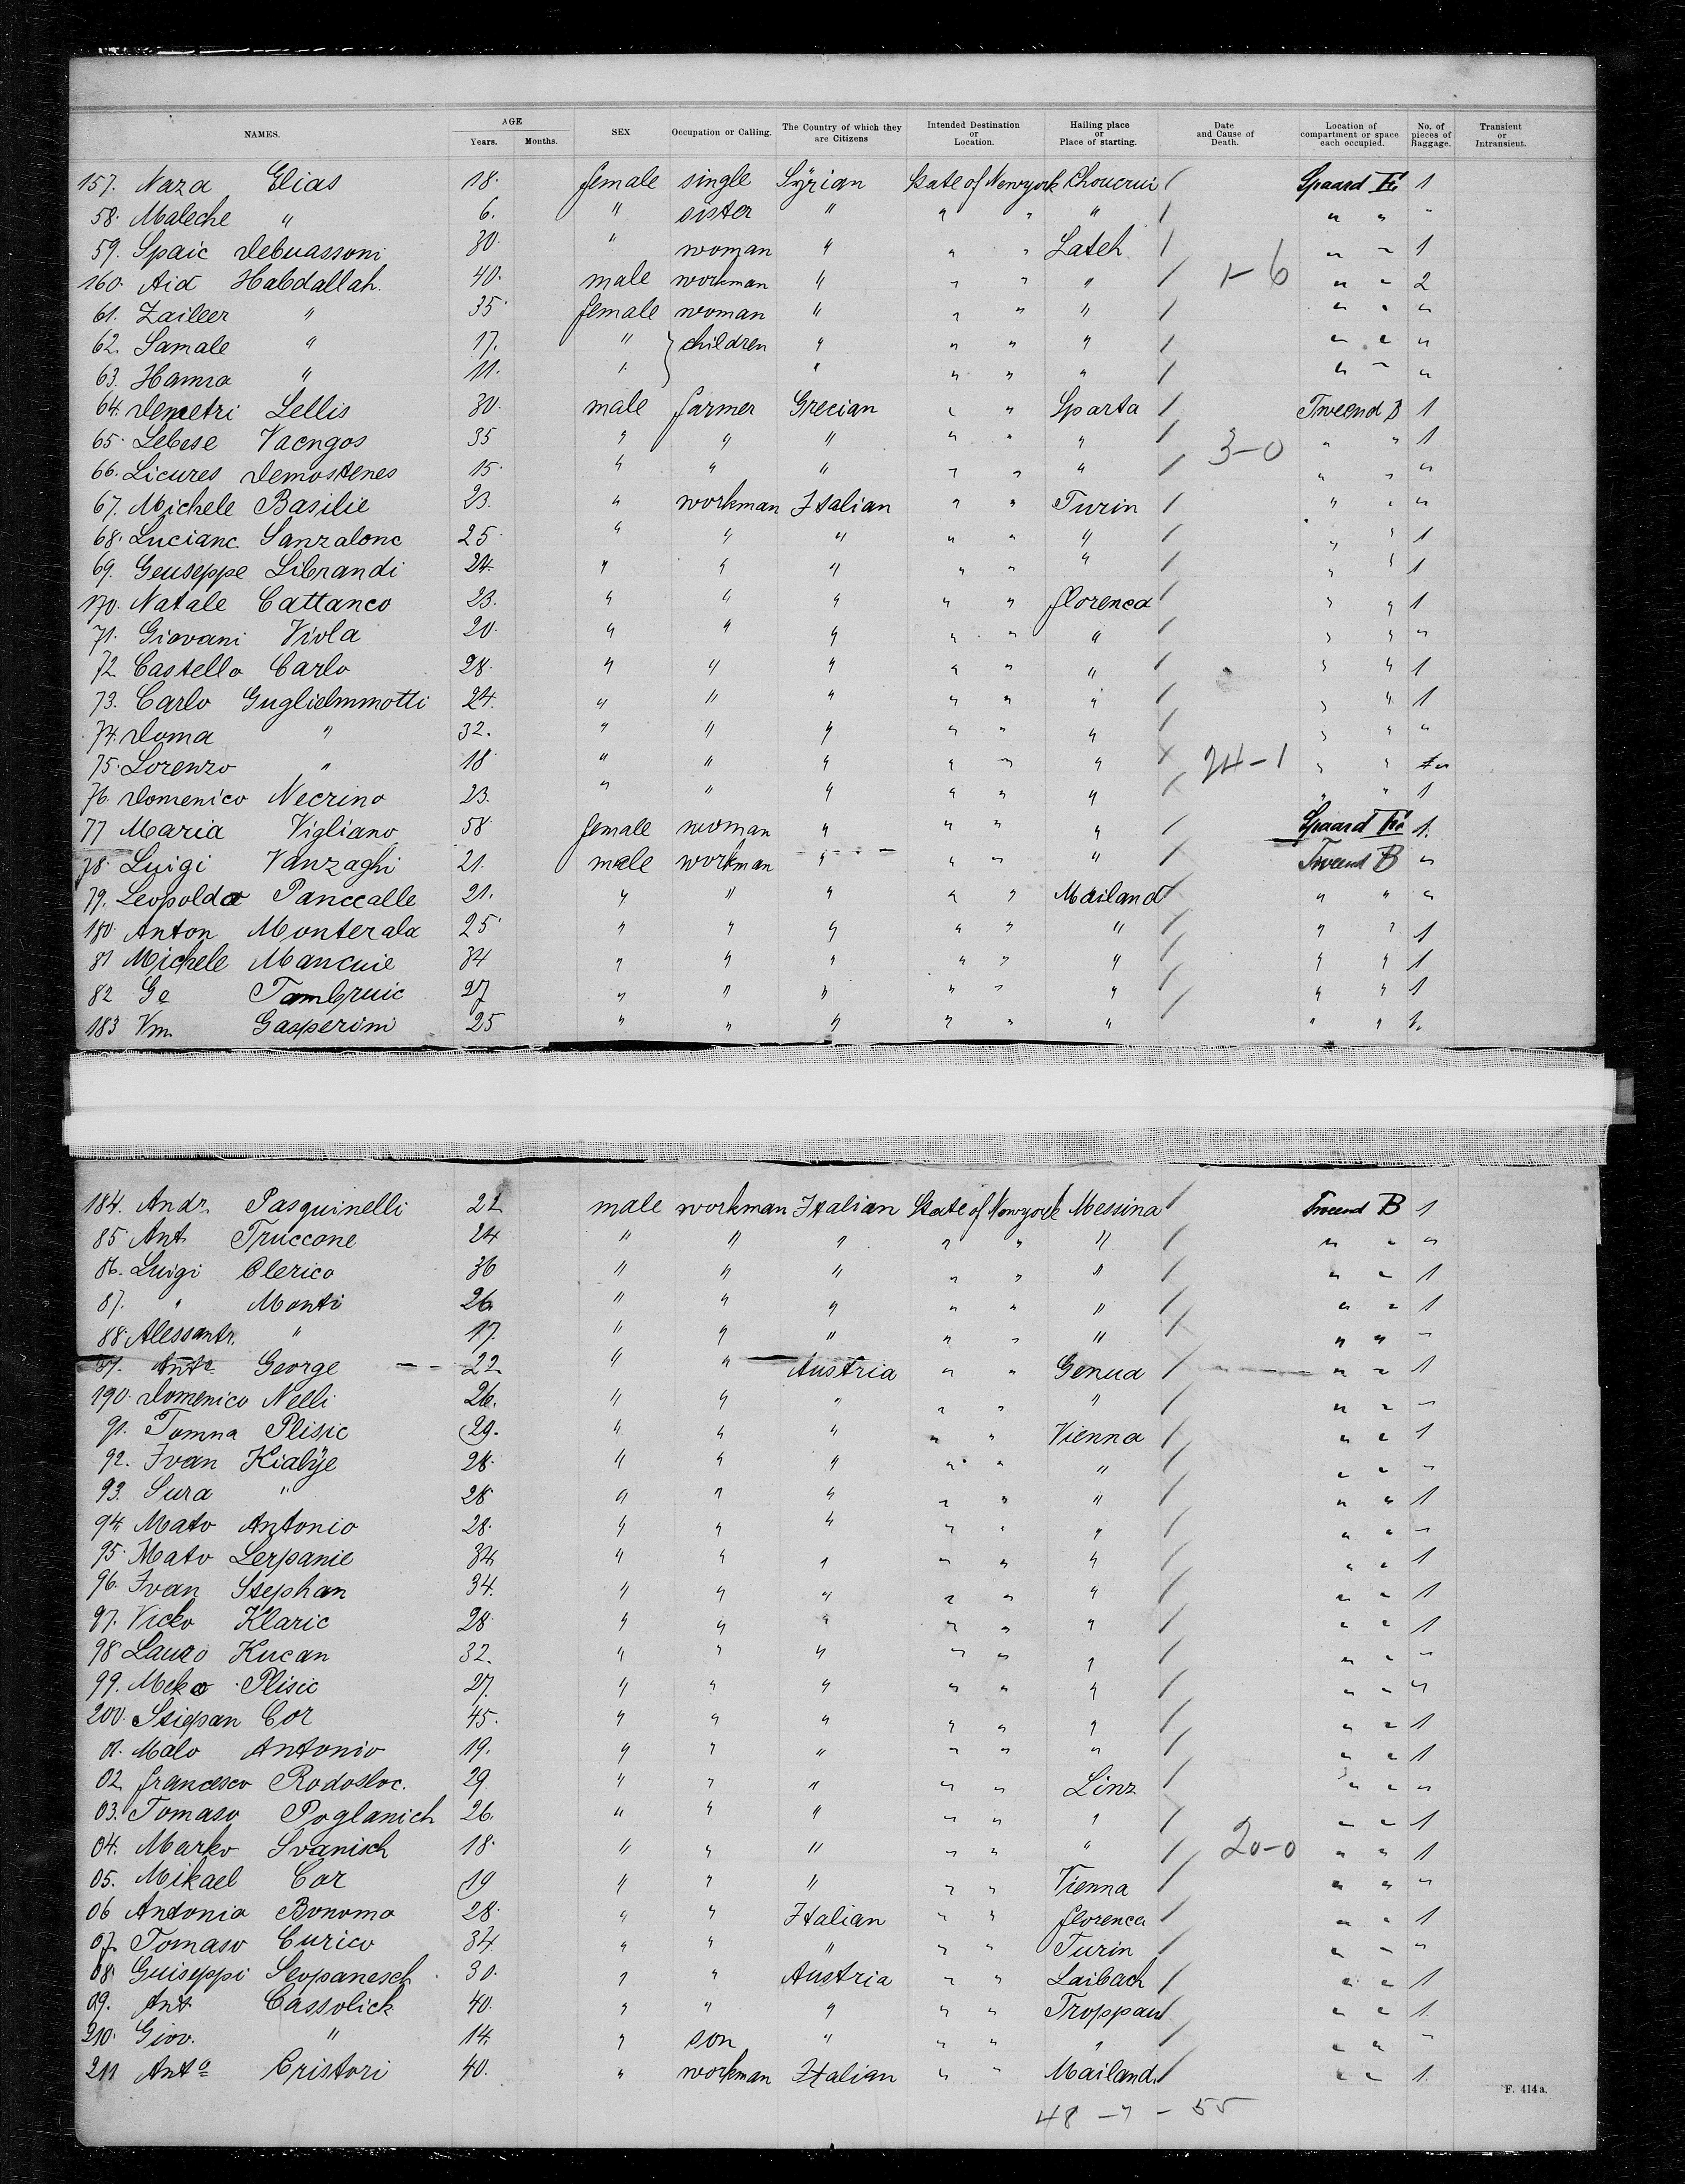 NAMES. AGE Years. Months. SEX Occupation or Calling. The Country of which they are Citizens Intended Destination or Location. Hailing place or Place of starting. Date and Cause of Death. Location of compartment or space each occupied. No. of pieces of Baggage. Transient or Intransient.
157. Naza Elias 18. female single Syrian State of Newyork / 1
58. Maleche " 6. " sister " " " " / " " "
59. Spaic Debuassoni 30. " woman " " " Lateh / " " 1
160. Aid Habdallah. 40. male workman " " " " / 1-6 " " 2
61. Zaileer " 35. female woman " " " " / " " "
62. Samale " 17. " children " " " " / " " "
63. Hanna " 11. " " " " " / " " "
64. Demetri Lellis 30. male farmer Grecian " " Sparta / Tweend B 1
65. Lebese Vacngos 35 " " " " " " / 3-0 " " 1
66. Licures Demostenes 15. " " " " " " / " " "
67. Michele Basilie 23. " workman Italian " " Turin / " " "
68. Lucianc Sanzalone 25. " " " " " " / " " 1
69. Geuseppe Librandi 24. " " " " " " / " " 1
170. Natale Cattaneo 23. " " " " " florenca / " " 1
71. Giovani Viola 20. " " " " " " / " " "
72 Castello Carlo 28. " " " " " " / " " 1
73. Carlo Guglielmmotti 24. " " " " " " / " " 1
74. Doma " 32. " " " " " " / " " "
75. Lorenzo " 18 " " " " " " 24-1 " "
76. Domenico Necrino 23. " " " " " " / " " 1
77 Maria Vigliano 58 female woman " " " " / 1.
78. Luigi Vanzaghi 21. male workman " " " " / Tweend B "
79. Leopoldo Panccalle 21. " " " " " Mailand / " " "
180. Anton Monterala 25 " " " " " " / " " 1
81 Michele Mancuie 34 " " " " " " / " " 1
82 Ge Tambruic 27 " " " " " " / " " 1
183 Vm. Gasperini 25 " " " " " " / " " 1.
184. Andr. Pasquinelli 22 male workman Italian State of Newyork Messina / Tweend B 1
85 Ant. Truccone 24 " " " " " " / " " "
86. Luigi Clerico 36 " " " " " " / " " 1
87. " Monti 26 " " " " " " / " " 1
88. Alessantr. " 17. " " " " " " / " " "
89. Anta George 22 " " Austria " " Genua / " " 1
190. Domenico Nelli 26. " " " " " " / " " "
91. Tomna Plisic 29. " " " " " Vienna / " " 1
92. Ivan Kialije 28. " " " " " " / " " "
93. Sura " 28 " " " " " " / " " 1
94. Mato Antonio 28. " " " " " " / " " "
95. Mato Lerpanie 34 " " " " " " / " " 1
96. Ivan Stephan 34. " " " " " " / " " 1
97. Vicko Klaric 28. " " " " " " / " " 1
98 Kucan 32. " " " " " " / " " "
99. Meko Plisic 27. " " " " " " / " " "
200. Stiepan Cor 45. " " " " " " / " " 1
01. Malo Antonio 19. " " " " " " / " " 1
02. francesco Rodosloc. 29. " " " " " Linz / " " "
03. Tomaso Poglanich 26. " " " " " " / " " 1
04. Marko Svanisch 18. " " " " " " / 20-0 " " 1
05. Mikael Cor 19 " " " " " Vienna / " " "
06 Antonia Bonomo 28. " " Italian " " florenca / " " 1
07. Tomaso Curico 34. " " " " " Turin / " " "
08. Guiseppi Scopanesch 30. " " Austria " " Laibach / " " 1
09. Ant Cassolick 40. " " " " " Troppau / " " 1.
210. Giov. " 14. " son " " " " / " " "
211 Anta Cristori 40. " workman Italian " " Mailand. / " " 1.
F. 414a.
48 - 7 - 55